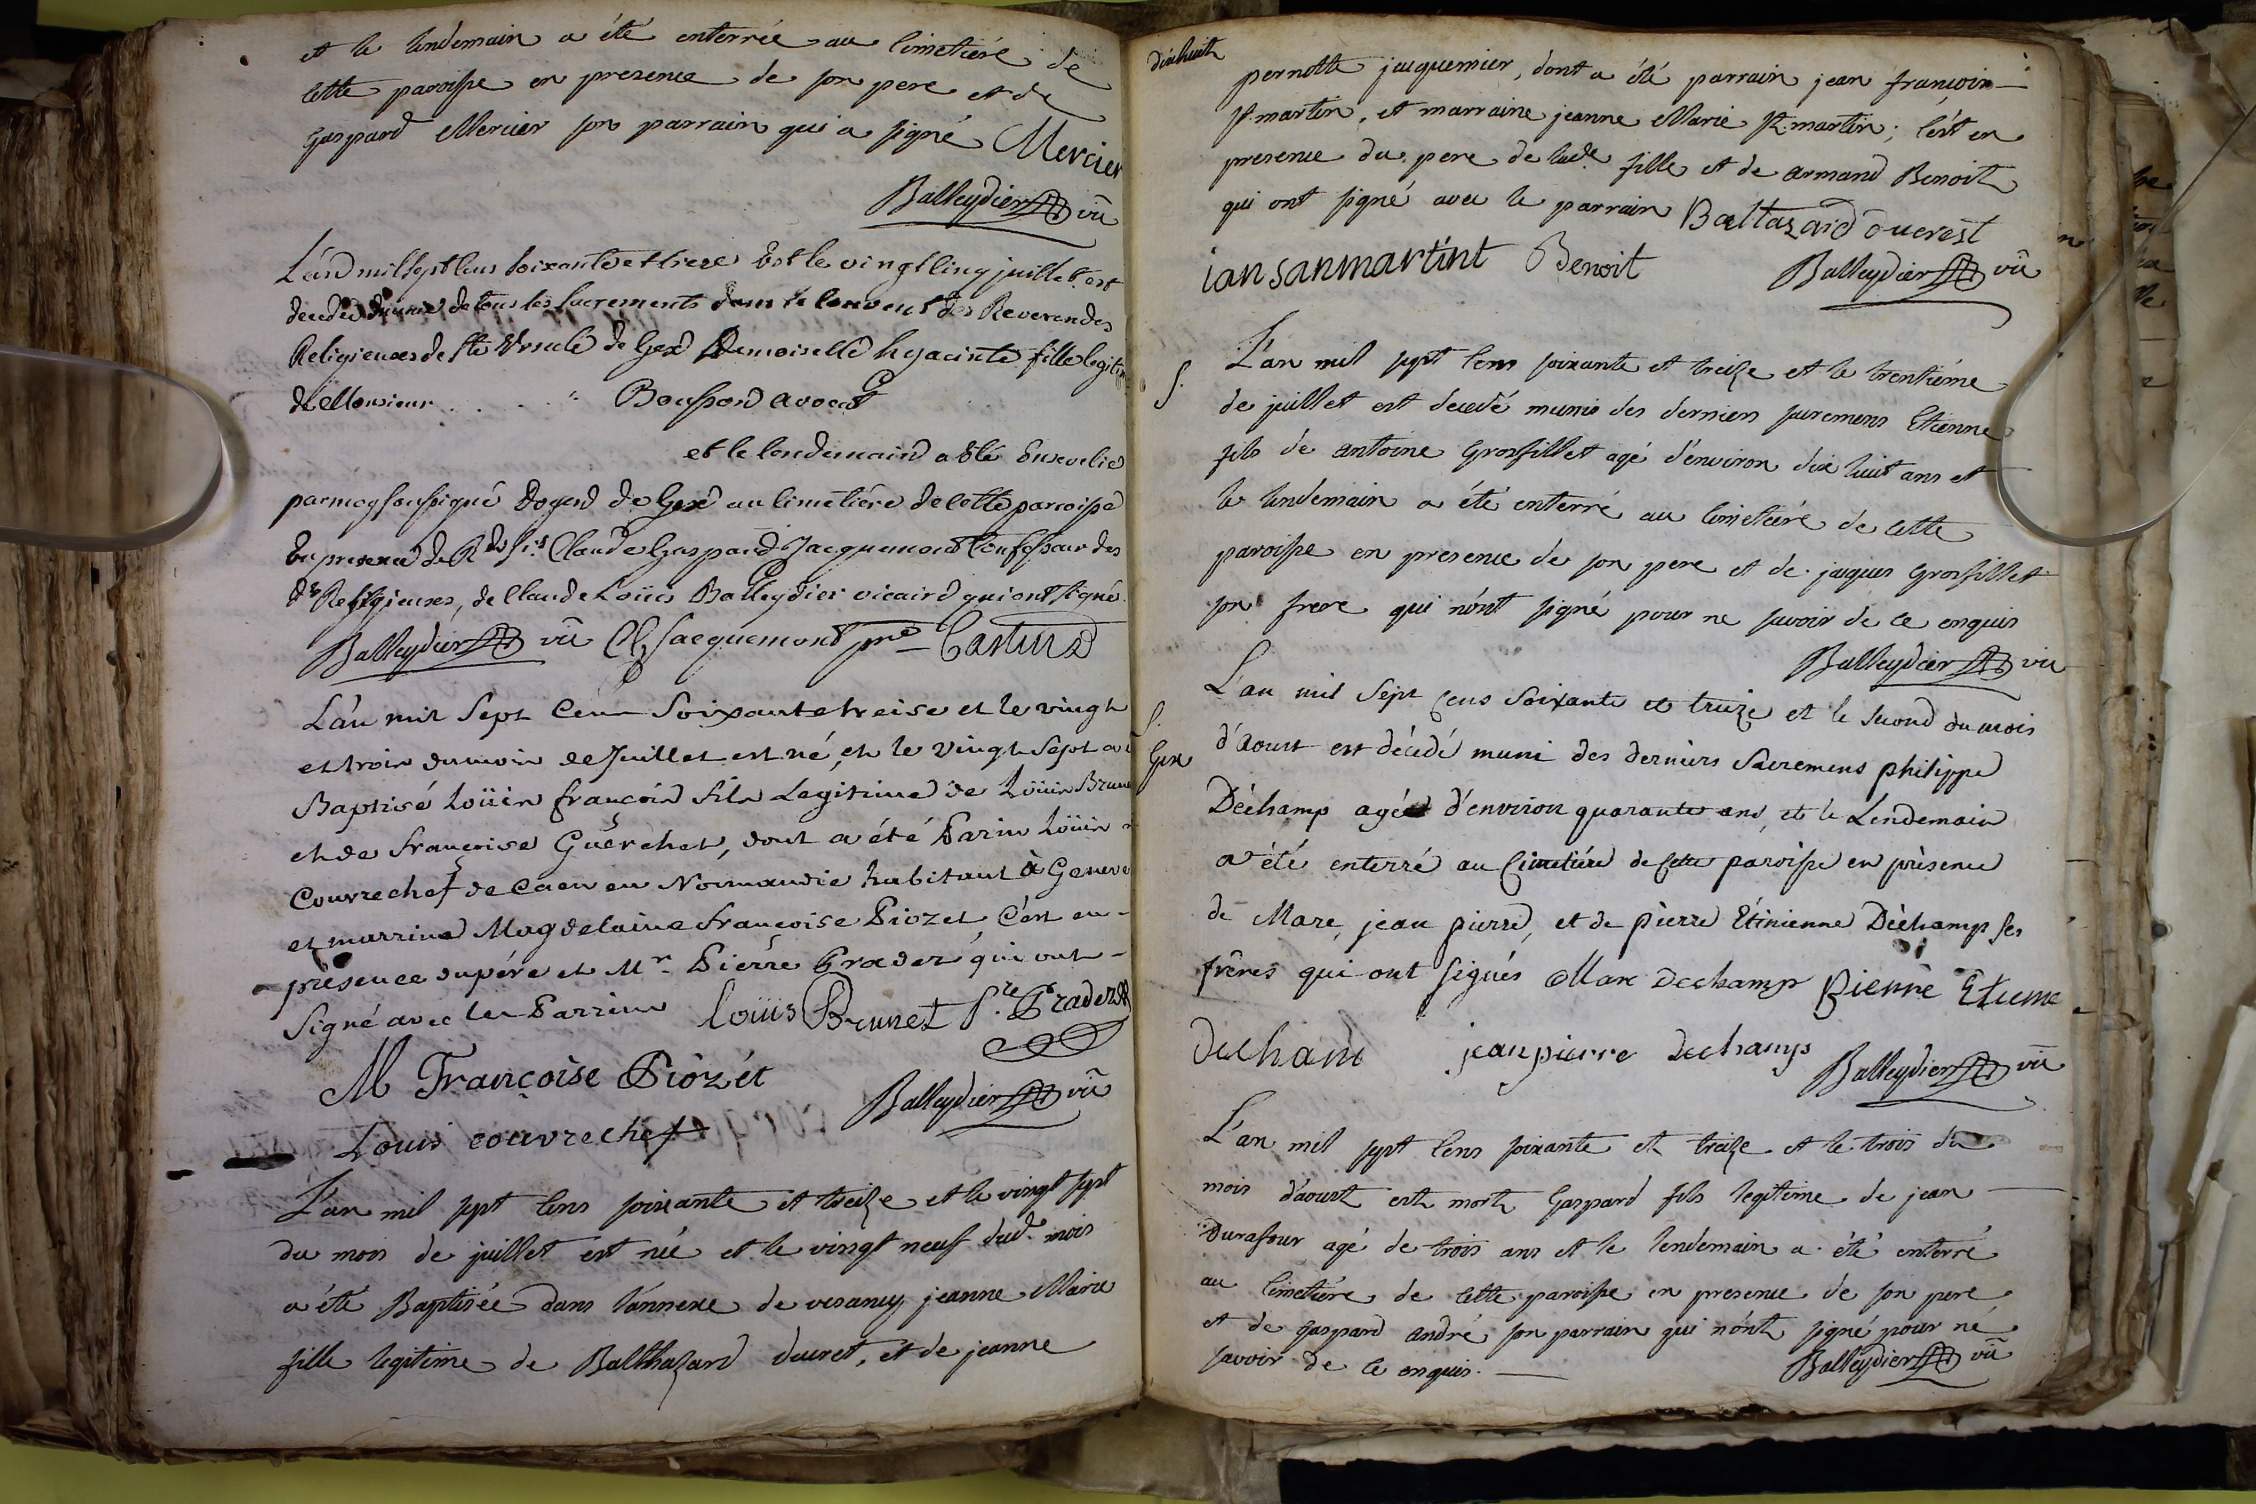 et le lendemain a été enterrée au Cimetiére de
cette paroisse en presence de son pere et de
Gaspard Mercier son parrain qui a signé Mercier
Balleydier vic
L'an mil sept cens soixante et treze Est le vingt cinq juillet est
decedée munie de tous les sacrements dans le Couvent des Reverendes
Religieuses de Ste Ursule de Gex Demoiselle hyacinte fille legitime
de Monsieur . . . . . Bousson avocat
et le lendemain a été Ensevelie
par moy soussigné Doyend de Gex au Cimetiére de cette paroisse
En presence de Rd Sr Claude Gaspard Jacquemont Confesseur des
dtes Religieuses, de Claude Loüis Balleydier vicaire qui ont signé
Balleydier vic CG Jacquemont pre Castin
L'an mil Sept Cens Soixante treise et le vingt
et trois du mois de Juillet est né, et le vingt Sept a été
Baptisé Loüis françois fils Legitime de Loüis Brunet
et de françoise Guërchet, dont a été Parin Loüis
Couvrechef de Caen en Normandie habitant à Geneve
et marrine Magdelaine françoise Piozet, C'est en
présence du pére et Mr Piërre Prader qui ont
Signé avec les Parrins Loüis Brunet Pre Prader
M Françoise Piozét
Balleydier vic
Louis couvrechef
L'an mil sept cens soixante et treize et le vingt sept
du mois de juillet est née et le vingt neuf dud. mois
a été Baptisée dans l'annexe de vesancy jeanne Marie
fille legitime de Balthazard ducret, et de jeanne
Dixhuit
pernotte jacquemier, dont a été parrain jean françois
St. martin, et marraine jeanne Marie St. martin; C'est en
presence du pere de lade fille et de armand Benoit
qui ont signé avec le parrain Baltazard ducrest
ian sanmartint Benoit
Balleydier vic
S.
L'an mil sept cens soixante et treize et le trentiéme
de juillet est decedé munis des derniers sacremens Etienne
fils de antoine Grosfillet agé d'environ dix huit ans et
le lendemain a été enterré au Cimetiére de cette
paroisse en presence de son pere et de jaques Grosfillet
son frere qui n'ont signé pour ne savoir de ce enquis
Balleydier vic
S.
Gex
L'an mil Sept Cens Soixante et treize et le second du mois
d'Aoust est décédé muni des derniers Sacremens philippe
Déchamp agé d'environ quarante ans, et le Lendemain
a été enterré au Cimetiére de Cette paroisse en présence
de Marc, jean pierre, et de pierre Etinienne Dèchamp ses
frêres qui ont signés Marc Dechamp Pierre Etiene
dechamt jean pierre dechamps
Balleydier vic
L'an mil sept cens soixante et treize et le trois du
mois d'aoust est mort Gaspard fils legitime de jean
Durafour agé de trois ans et le lendemain a été enterré
au Cimetiére de cette paroisse en presence de son pere
et de Gaspard andré son parrain qui n'ont signé pour ne
savoir de ce enquis.
Balleydier vic